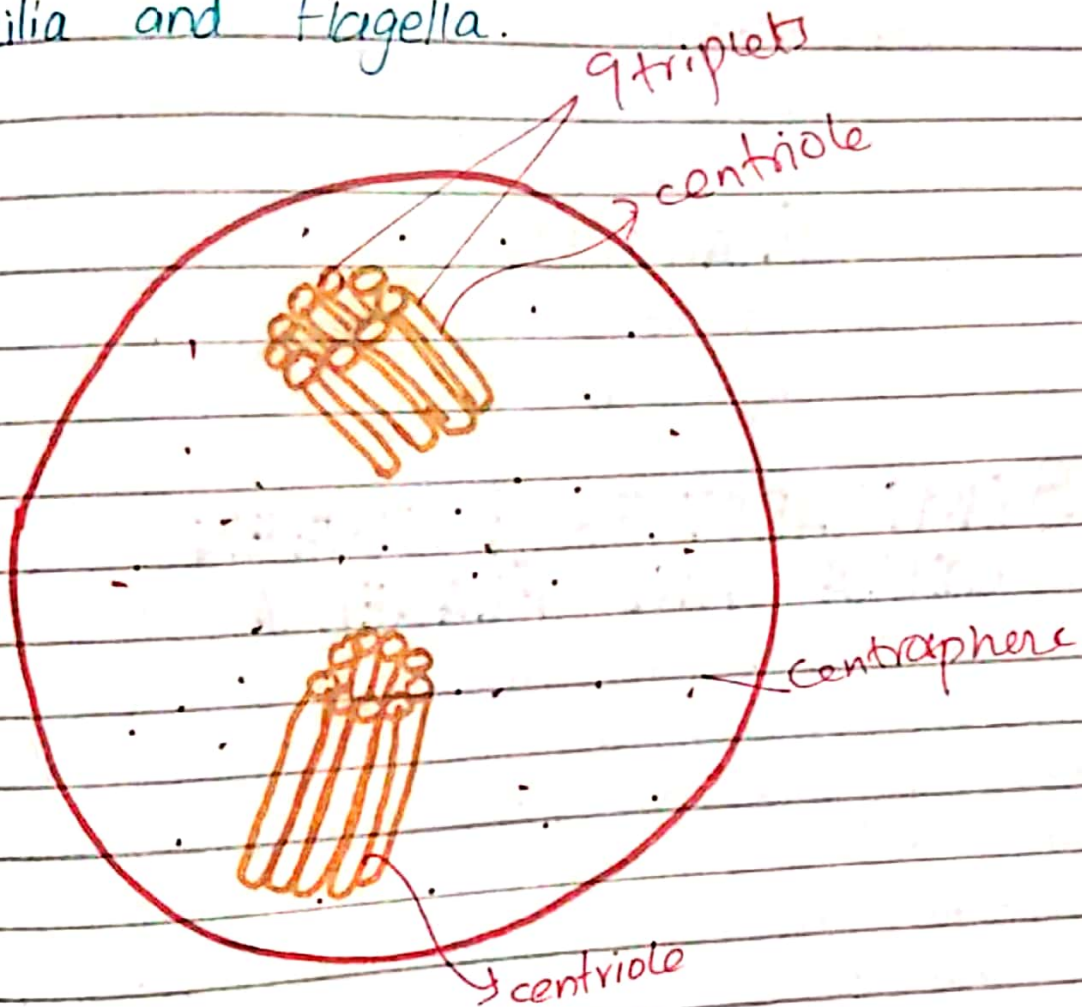 ilia and Flagella.
9 triplets
centriole
centrosphere
centriole